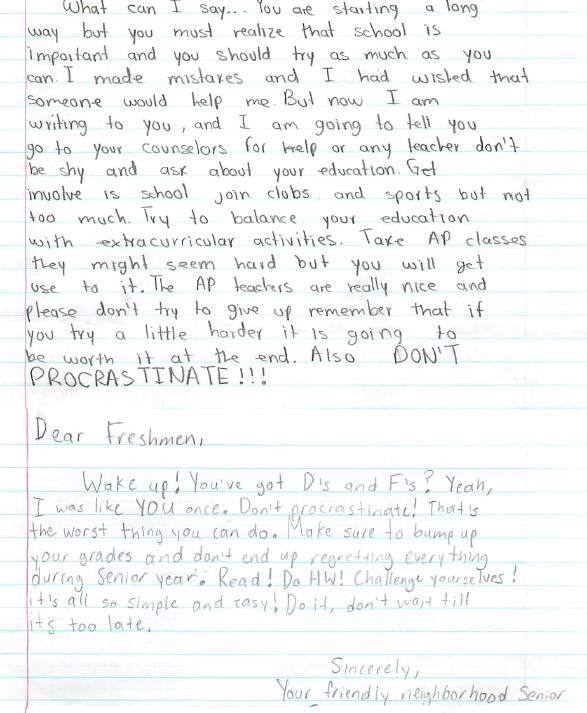 What can I say... You are starting a long
way but you must realize that school is
important and you should try as much as you
can. I made mistakes and I had wished that
someone would help me. But now I am
writing to you, and I am going to tell you
go to your counselors for help or any teacher don't
be shy and ask about your education. Get
involve is school join clobs, and sports but not
too much. Try to balance your education
with extracurricular activities. Take AP classes
they might seem hard but you will get
use to it. The AP teachers are really nice and
please don't try to give up remember that if
you try a little harder it is going to
be worth it at the end. Also DON'T
PROCRASTINATE!!!
Dear Freshmen,
Wake up! You've got D's and F's? Yeah,
I was like YOU once. Don't procrastinate! That's
the worst thing you can do. Make sure to bump up
your grades and don't end up regretting everything
during Senior year. Read! Do HW! Challenge yourselves!
it's all so simple and easy! Do it, don't wait till
its too late.
Sincerely,
Your friendly neighborhood Senior